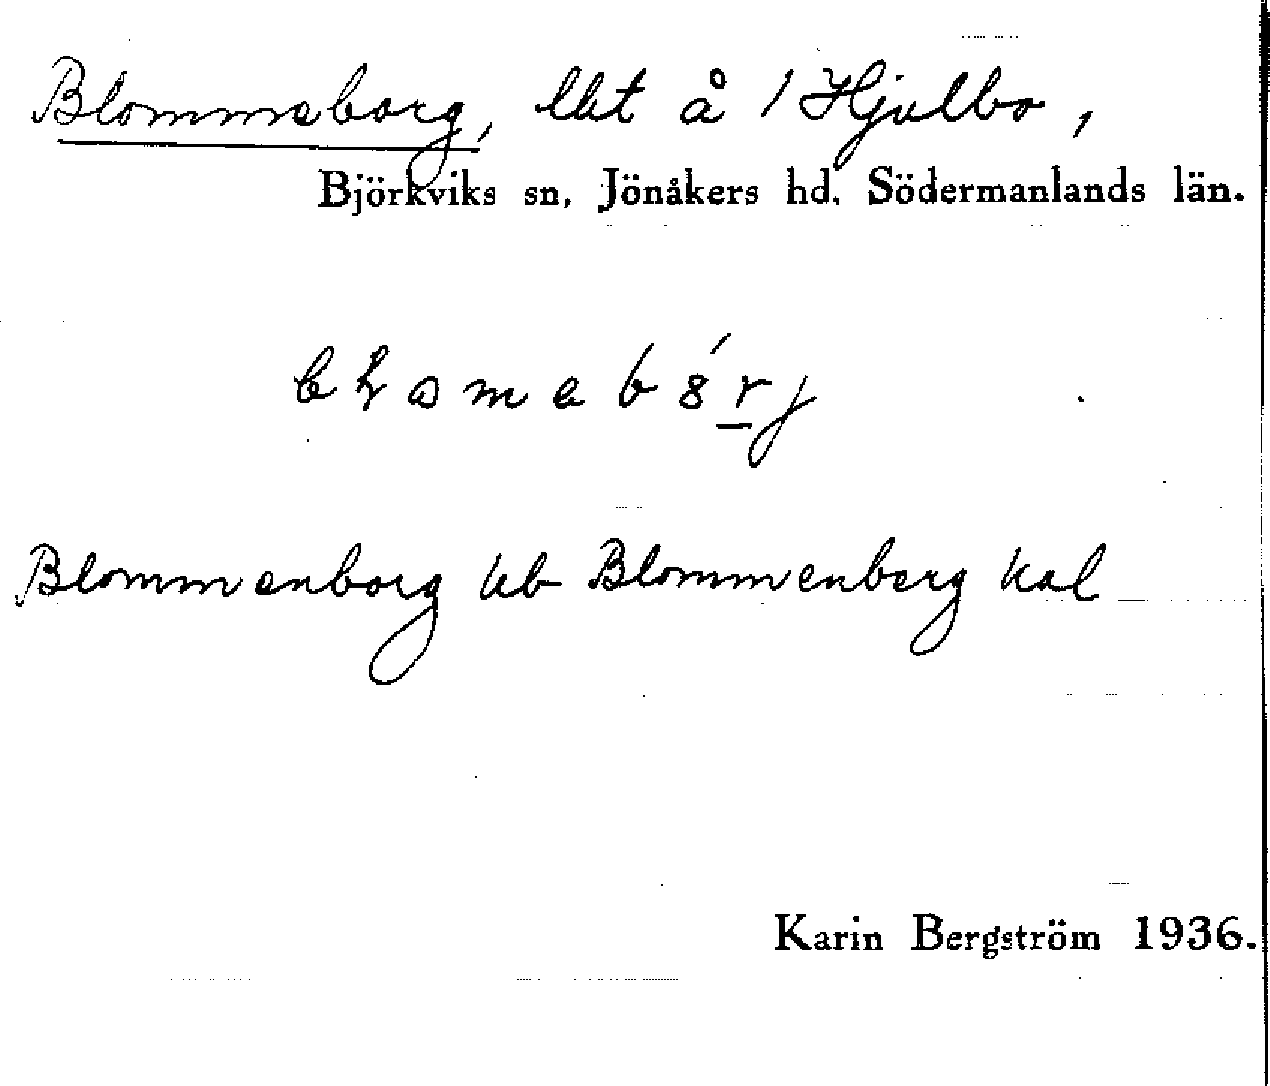 Blommeborg, lht å 1 Hjulbo,
Björkviks sn, Jönåkers hd, Södermanlands län.
Blommenborg kb Blommenberg kal
Karin Bergström 1936.